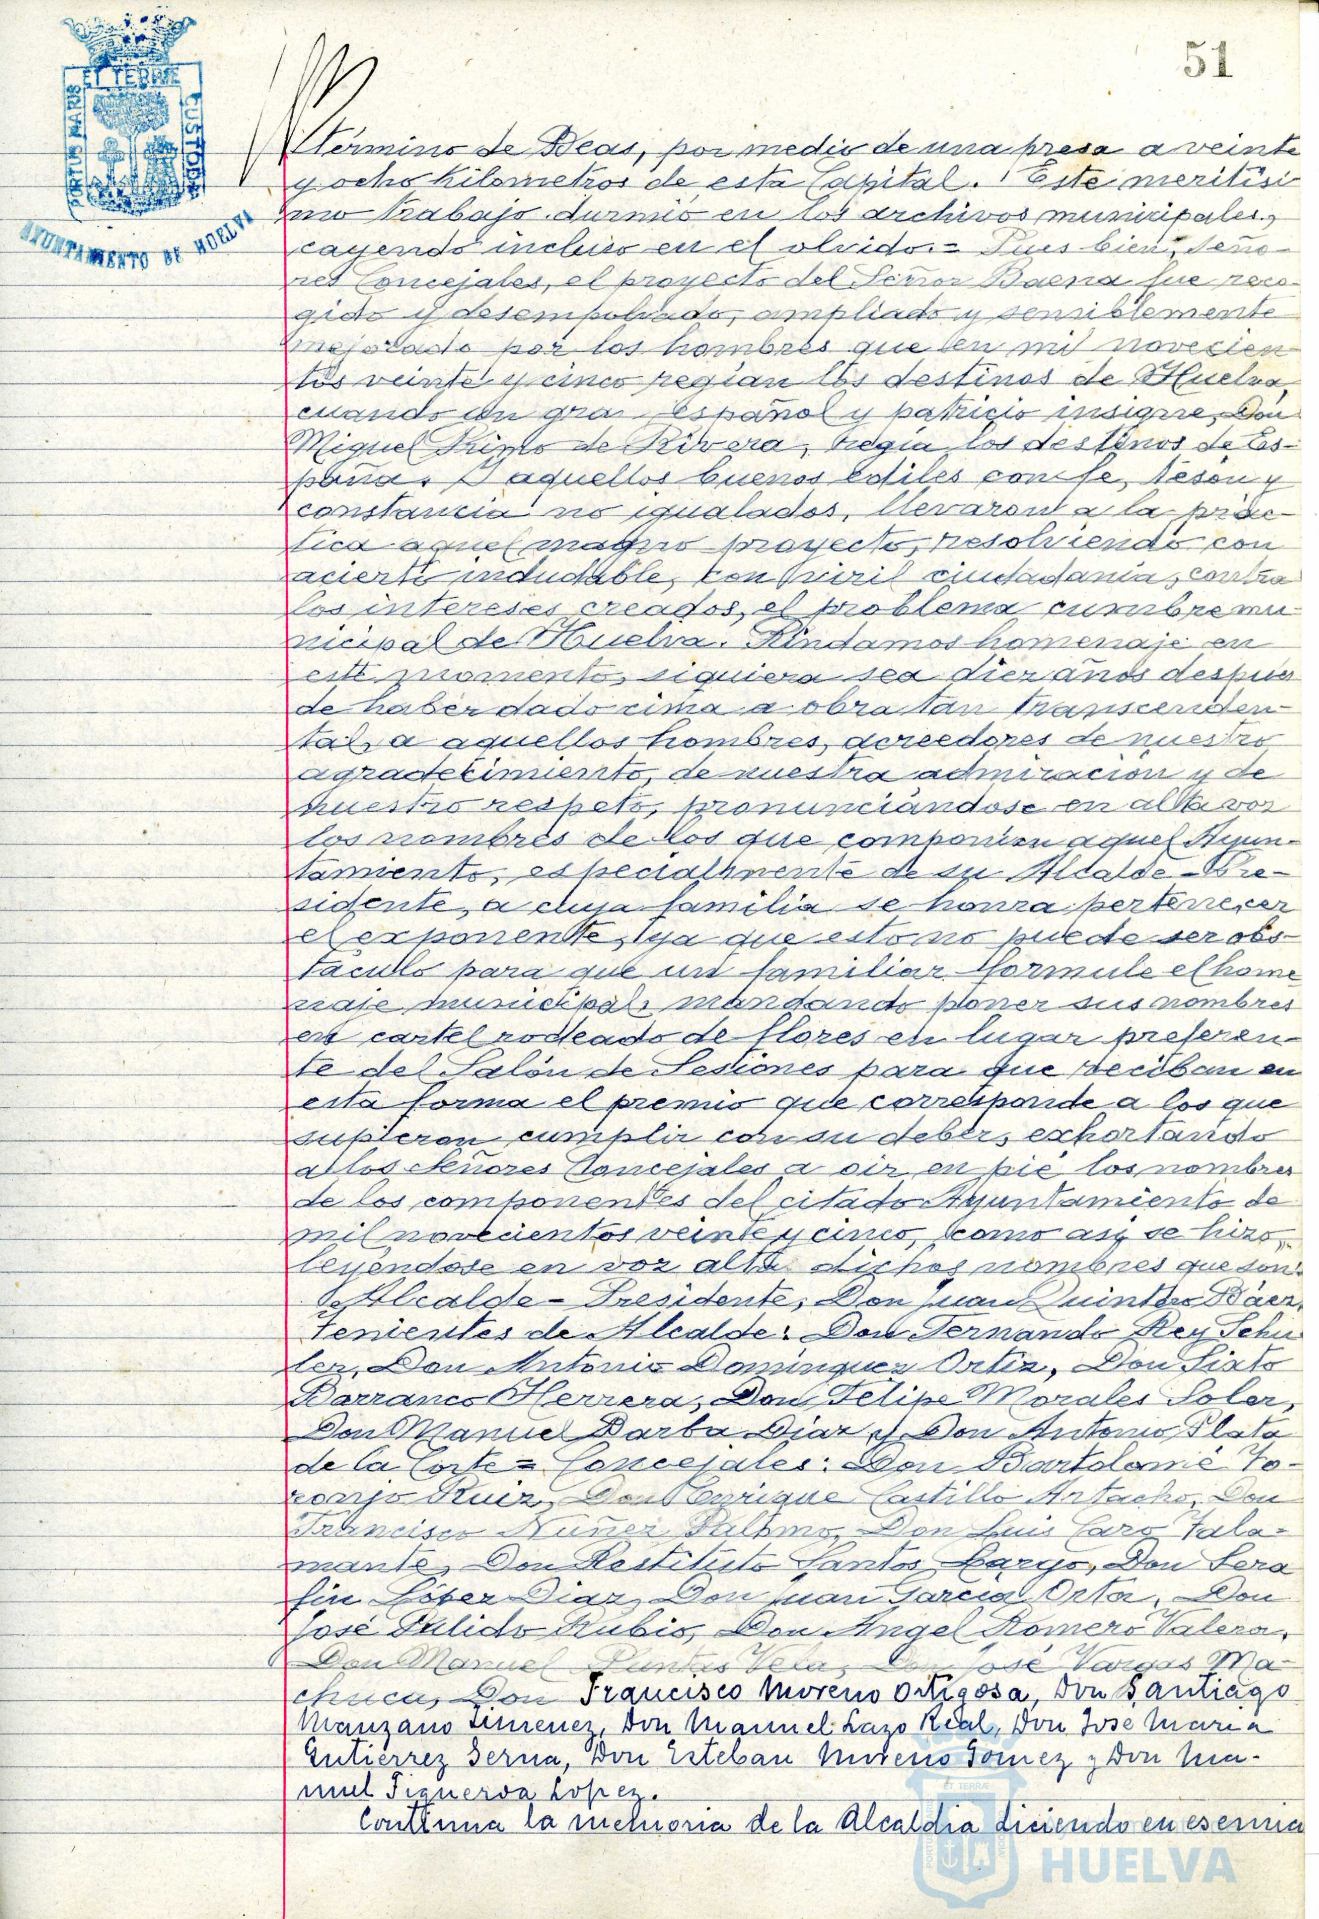 51
PORTUS MARIS ET TERRÆ CUSTODIA
AYUNTAMIENTO DE HUELVA
término de Beas, por medio de una presa a veinte
y ocho kilometros de esta Capital. Este meritisi
mo trabajo durmió en los archivos municipales,
cayendo incluso en el olvido.= Pues bien, Seño-
res Concejales, el proyecto del Señor Baena fue reco-
gido y desempolvado, ampliado y sensiblemente
mejorado por los hombres que en mil novecien-
tos veinte y cinco regian los destinos de Huelva,
cuando un gran español y patricio insigne, Don
Miguel Primo de Rivera, regia los destinos de Es-
paña. Y aquellos buenos ediles con fe, tesón y
constancia no igualados, llevaron a la prác-
tica aquel magno proyecto, resolviendo con
acierto indudable, con viril ciudadania, contra
los intereses creados, el problema cumbre mu-
nicipal de Huelva. Rindamos homenaje en
este momento, siquiera sea diez años después
de haber dado cima a obra tan transcenden-
tal, a aquellos hombres, acreedores de nuestro
agradecimiento, de nuestra admiración y de
nuestro respeto, pronunciándose en alta voz
los nombres de los que componian aquel Ayun-
tamiento, especialmente de su Alcalde-Pre-
sidente, a cuya familia se honra pertenecer
el exponente, ya que esto no puede ser obs-
táculo para que un familiar formule el home
naje municipal, mandando poner sus nombres
en cartel rodeado de flores en lugar preferen-
te del Salón de Sesiones para que reciban en
esta forma el premio que corresponde a los que
supieron cumplir con su deber, exhortando
a los Señores Concejales a oir en pié los nombres
de los componentes del citado Ayuntamiento de
mil novecientos veinte y cinco, como asi se hizo,
leyéndose en voz alta dichos nombres que son:
Alcalde-Presidente, Don Juan Quintero Báez,
Tenientes de Alcalde: Don Fernando Rey Schu
ler, Don Antonio Dominguez Ortiz, Don Sixto
Barranco Herrera, Don Felipe Morales Soler,
Don Manuel Barba Diaz, y Don Antonio Plata
de la Corte= Concejales: Don Bartolomé To-
ronjo Ruiz, Don Enrique Castillo Artacho, Don
Francisco Nuñez Palomo, Don Luis Caro Tala-
mante, Don Restituto Santos Largo, Don Sera
fin López Diaz, Don Juan Garcia Orta, Don
José Pulido Rubio, Don Angel Romero Valera,
Don Manuel Puntas Vela, Don José Vargas Ma-
chuca, Don Francisco Moreno Ortigosa, Don Santiago
Manzano Jimenez, Don Manuel Lazo Real, Don José Maria
Gutierrez Serna, Don Esteban Moreno Gomez y Don Ma-
nuel Figueroa Lopez.
Continua la memoria de la Alcaldia diciendo en esencia
HUELVA